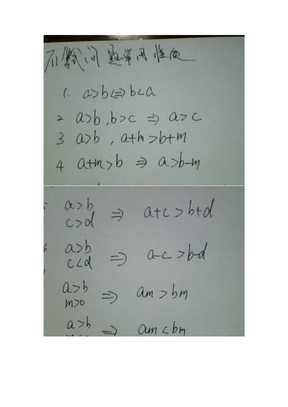 不等式问题常用性质
1. a>b⇔b<a
2 a>b,b>c ⇒ a>c
3 a>b, a+m>b+m
4 a+m>b ⇒ a>b-m
a>b
c>d ⇒ a+c>b+d
a>b
c<d ⇒ a-c>b-d
a>b
m>0 ⇒ am>bm
a>b
⇒ am<bm